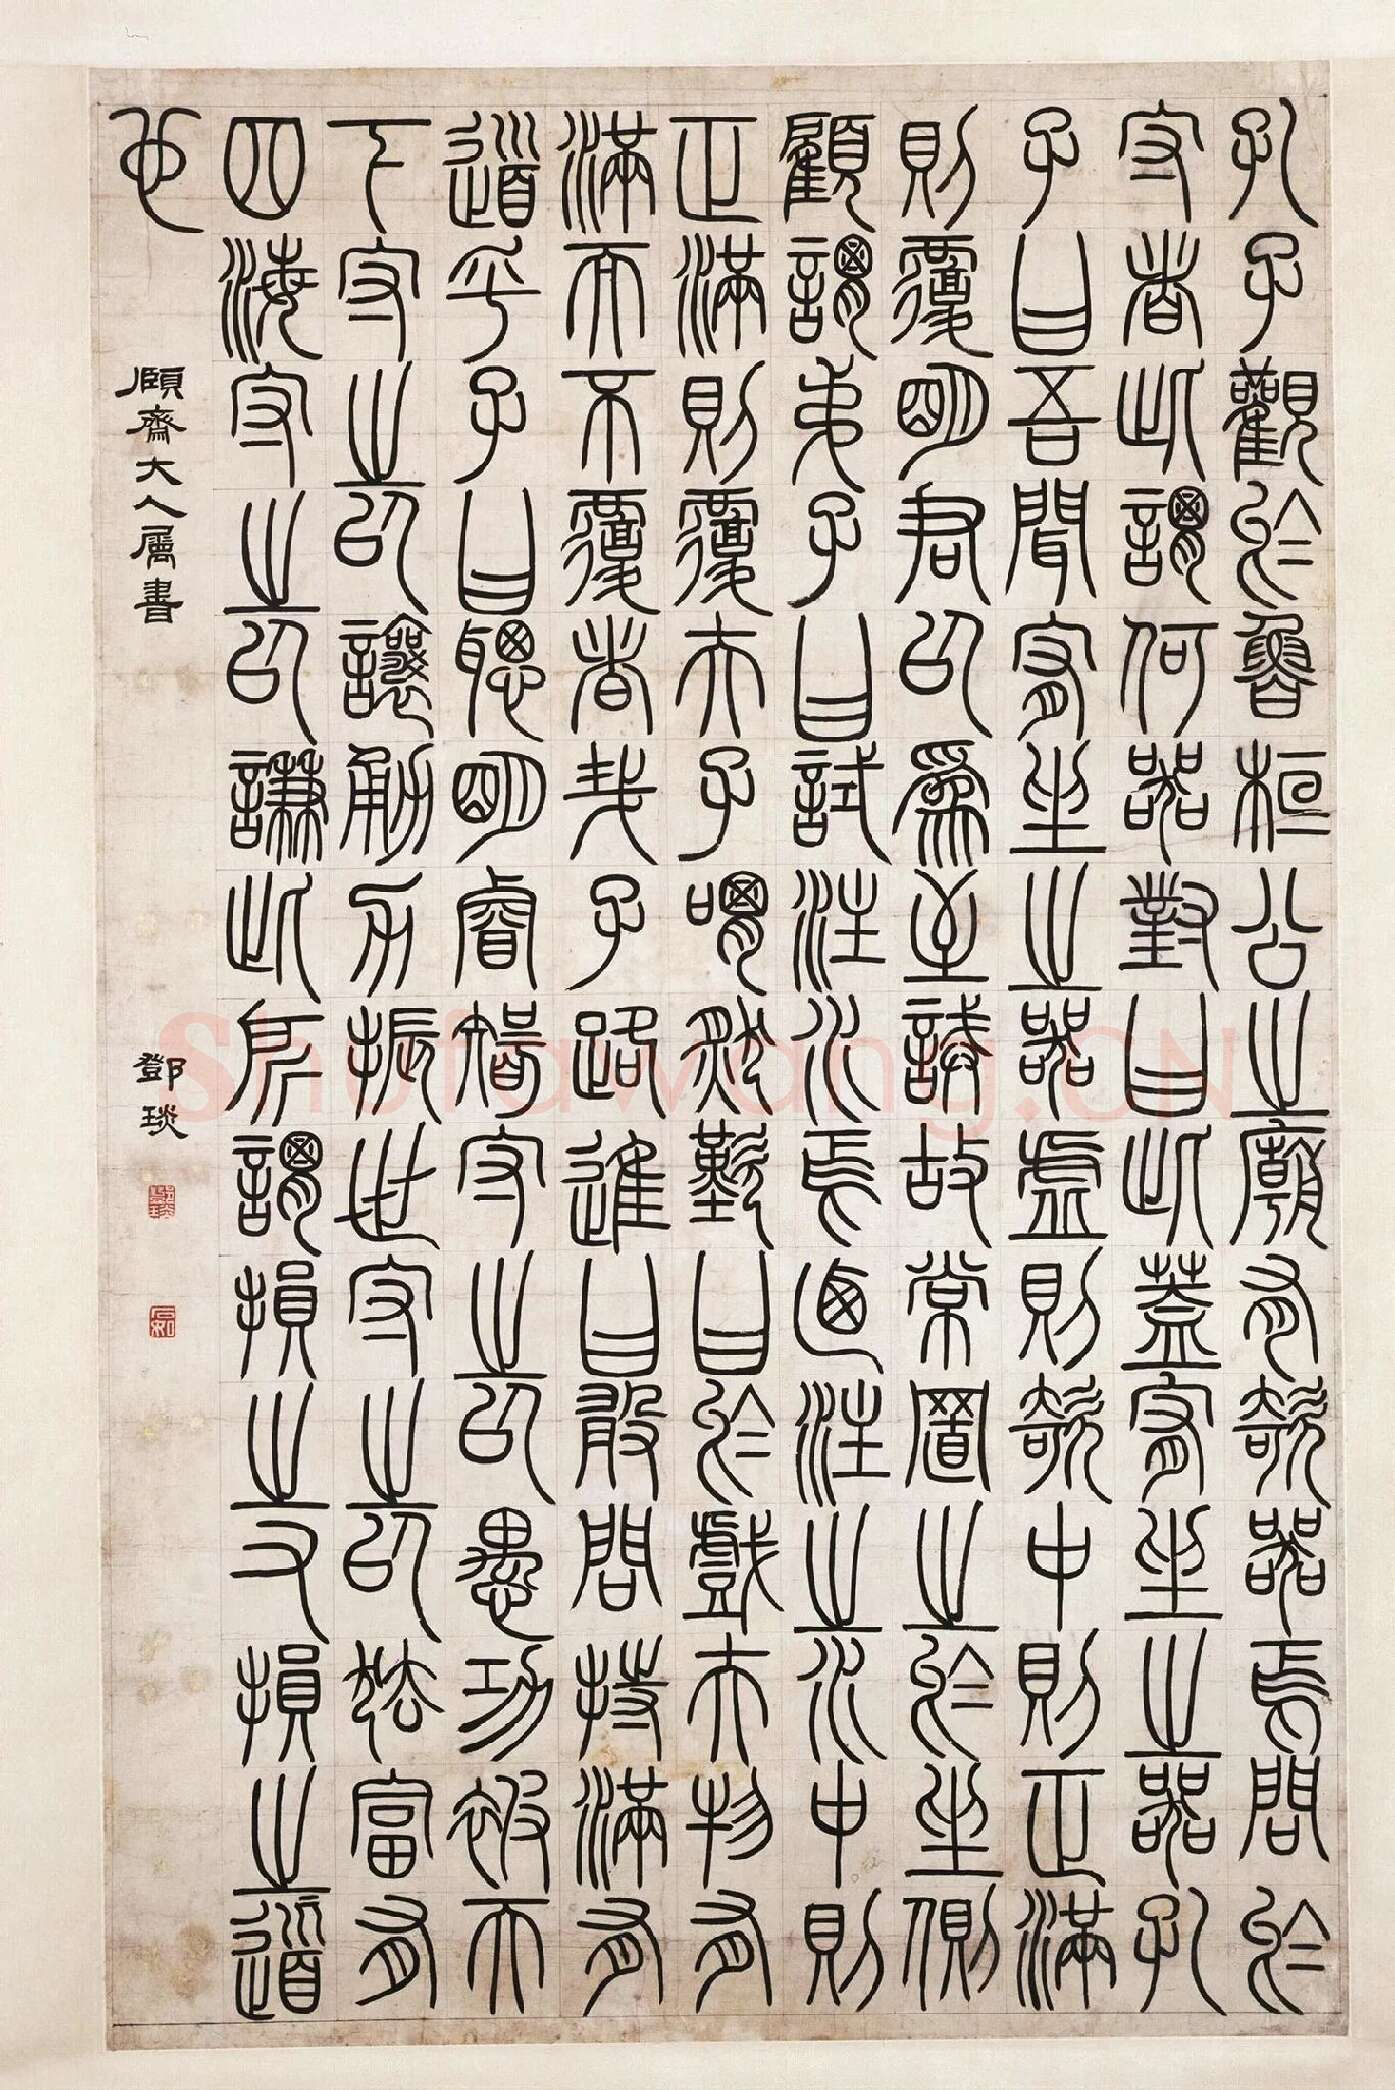 孔子觀於魯桓公之廟有欹器焉問於
守者此謂何器對曰此蓋宥坐之器孔
子曰吾聞宥坐之器虛則欹中則正滿
則覆明君以為至誡故常置之於坐側
顧謂弟子曰試注水焉迺注之水中則
正滿則覆夫子喟然歎曰於戲夫物有
滿而不覆者哉子路進曰敢問持滿有
道乎子曰聰明睿智守之以愚功被天
下守之以讓勇力振世守之以怯富有
四海守之以謙此所謂損之又損之道
也
頤齋大人屬書
鄧琰
鄧琰
石如
shufawang.CN